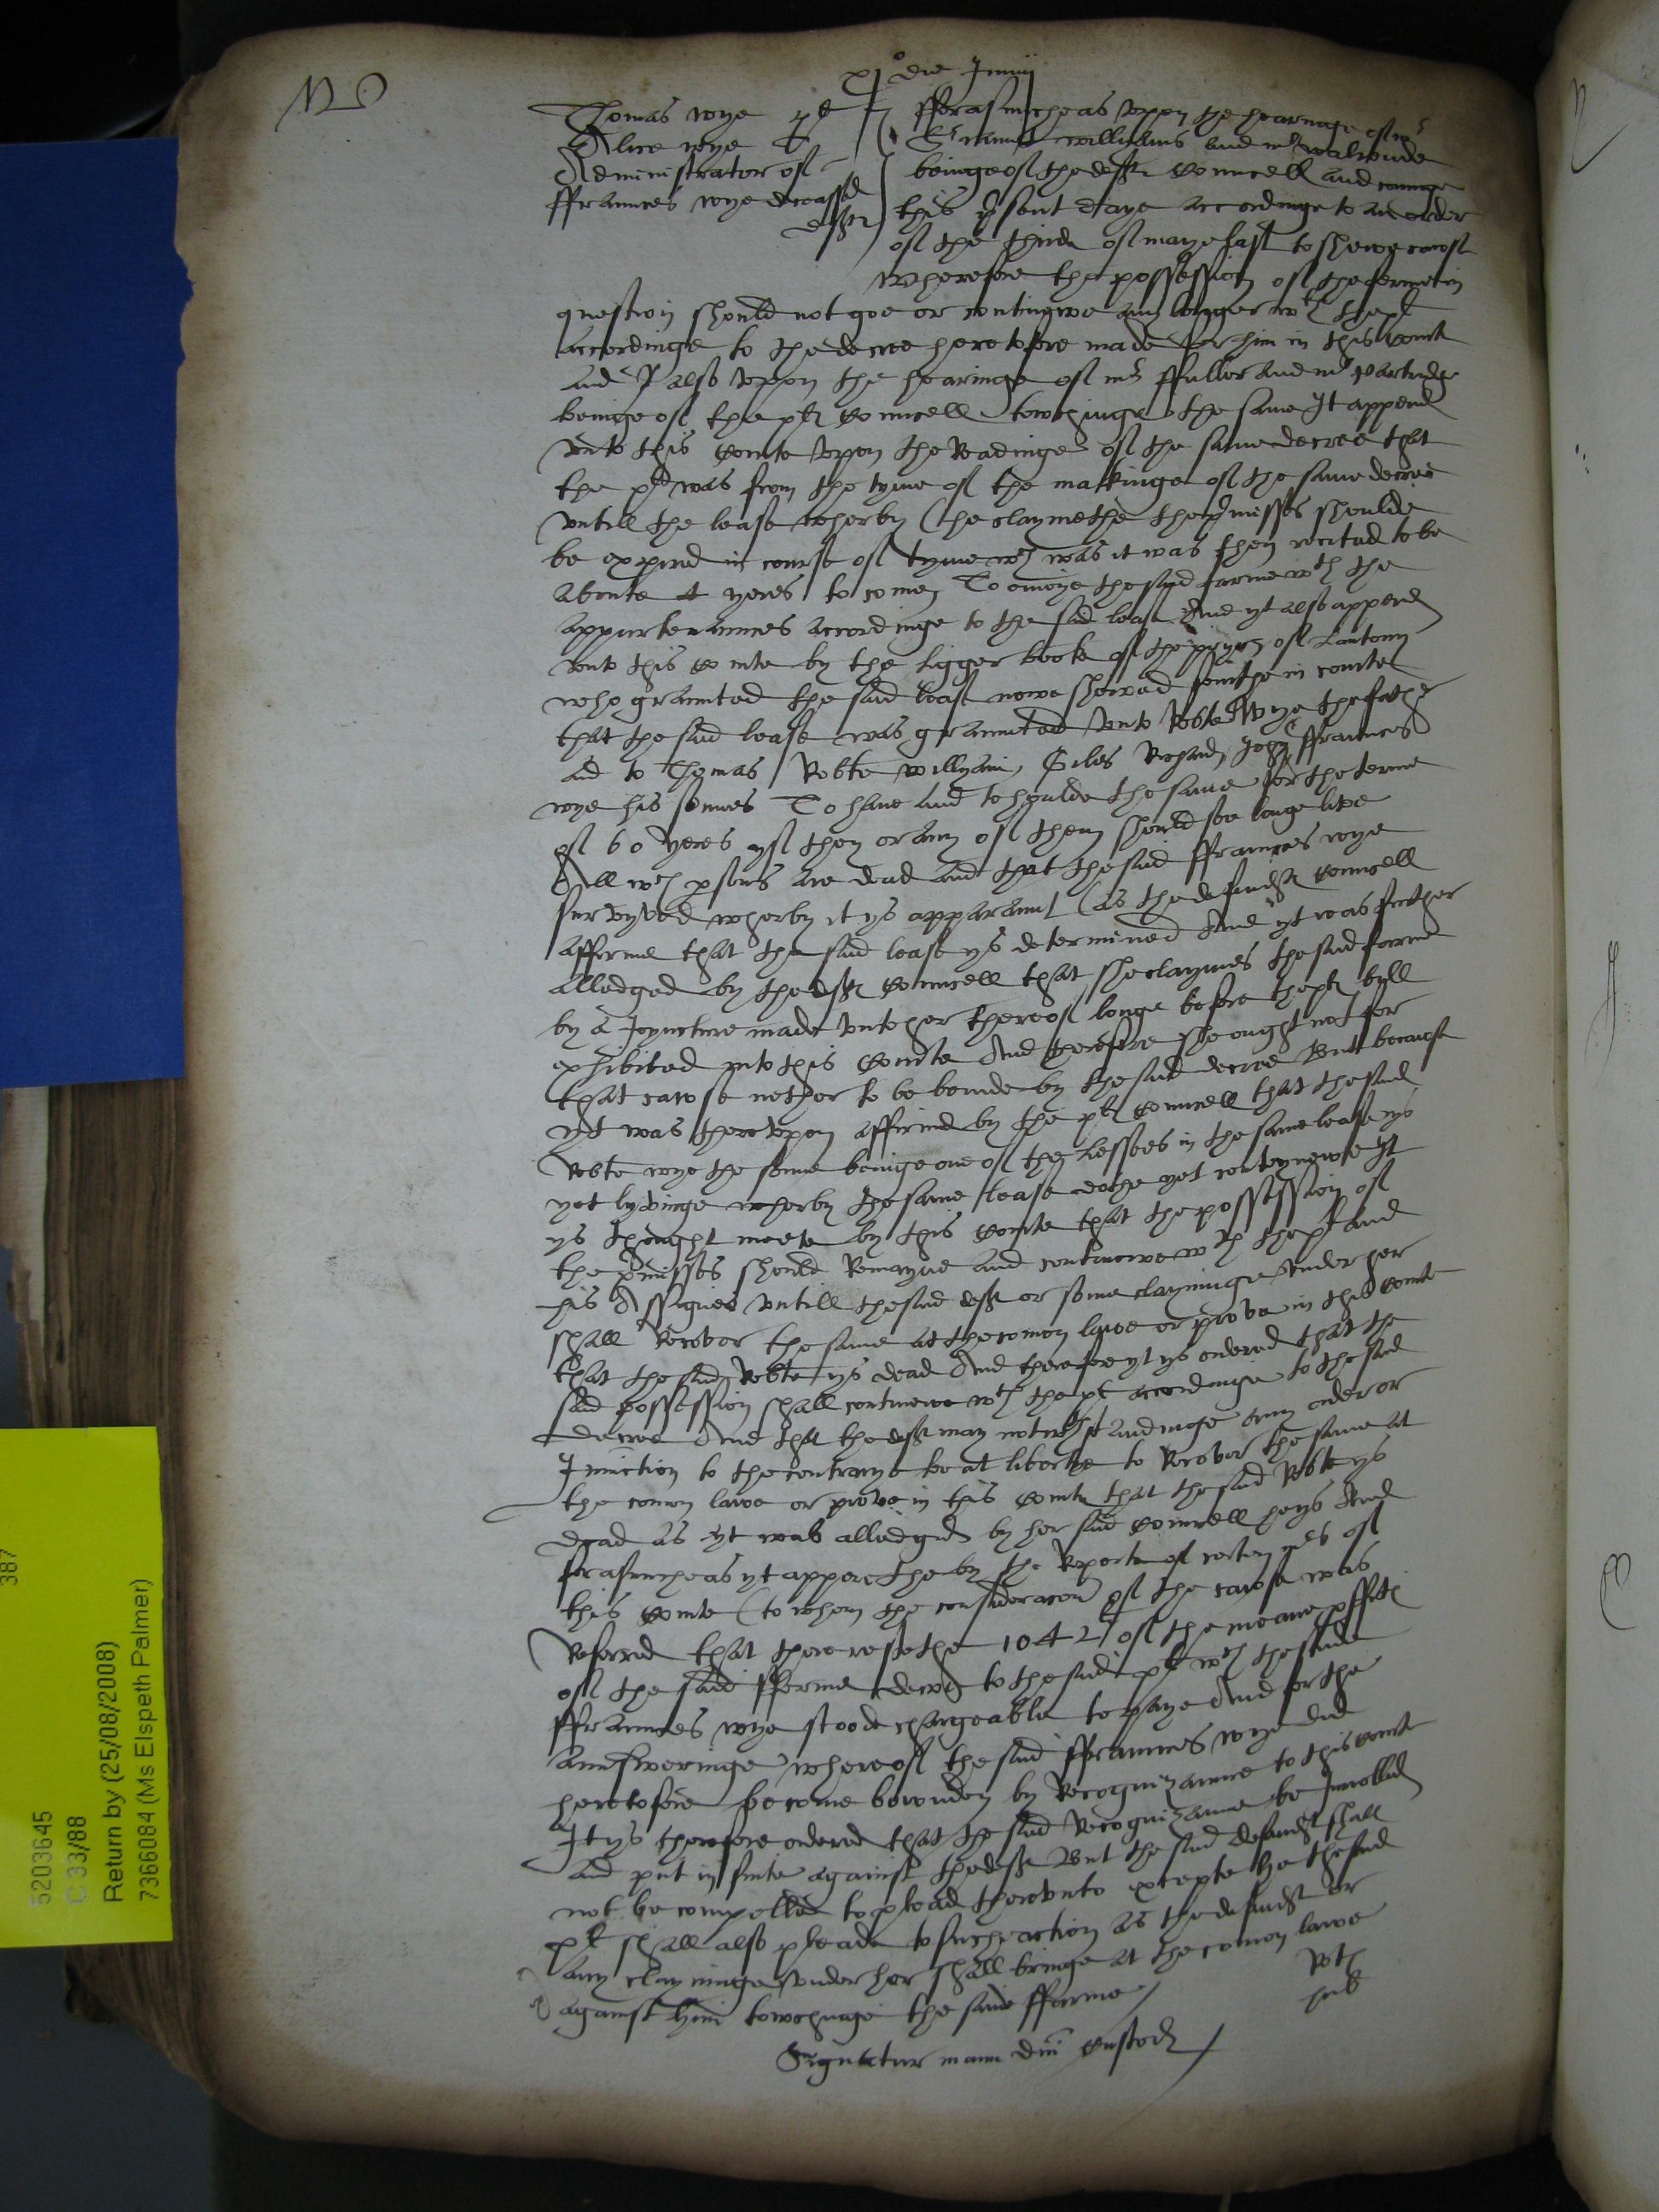 xj° die Junij
Thomas wye pl
Alice wye
Administrator of
ffraunces wye deceassed
deft
fforasmuche as upon the hearinge of mr
St william and mr walronde
beinge of the deftes Councell and cominge
this pnsent daye accordinge to an order
of the thirde of maye last to shewe cawse
wherefore the possession of the ferme in
question should not goe or contineue any longer wth the pl
accordinge to the decree heretofore made for him in this Courte
and also upon the hearinge of mr ffuller and mr Partridge
beinge of the pltes Councell towchinge the same It appered
unto this Courte upon the Readinge of the same decree that
the plt was from the tyme of the makinge of the same decree
untill the lease wherby he claymethe the pmisses shoulde
be expired in course of tyme wch was as it was then recited to be
aboute 4 yeres to come To enioye the said farme wth the
appurtenaunces accordinge to the said lease And yt also appered
unto this Courte by the ligger booke of the pryor of Lantony
who graunted the said lease nowe shewed forthe in courte
that the said lease was graunted unto Robte Wye the father
and to Thomas Robte willyam, Giles Richard, John ffraunces
wye his sonnes To have and to houlde the same for the terme
of 60 yeres yf they or any of them should soe longe live
All wch psons are dead and that the said ffraunces wye
survyved wherby it ys apparaunt (as the defendtes Councell
afferme that the said lease ys determined And yt was further
alledged by the deftes Councell that she claymes the said farme
by a Joyncture made unto her thereof longe before the pltes bill
exhibited into this Courte And therefore she ought not for
that cawse nether to be bounde by the said decree But because
yt was thereupon affirmed by the pltes Councell that the said
Robte wye the sonne beinge one of the Lessees in the same lease ys
yet lyvinge wherby the same lease dothe yet conteynewe It
ys thought meete by this Courte that the possession of
the pmisses should Remayne and contineue wth the plt and
his Assignes untill the said deft or some clayminge under her
shall Recover the same at the comon lawe or prove in this Courte
that the said Robte ys dead And therefore yt ys ordered that the
said possession shall contineue wth the plt accordinge to the said
decree And that the deft may notwthstandinge any order or
Iniunction to the contrarye be at libertye to Recover the same at
the comon lawe or prove in this Courte that the said Robte ys
dead as yt was alledged by her said Councell he ys And
forasmuche as yt apperethe by the Reporte of certen mrs of
this Courte (to whom the consideracon of the cawse was
Referred that there restethe 104 2 of the meane pffittes
of the said fferme dewe to the said plt wch the said
ffraunces wye stoode chargeable to paye And for the
aunsweringe whereof the said ffraunces wye did
heretofore become bounden by Recognizaunce to this Courte
It ys therefore ordered that the said Recognizaunce be Inrolled
and put in suite against the deft But the said defendt shall
not be compelled to plead thereunto excepte he the said
plt shall also pleade to suche action as the defendt or
any clayminge under her shall bringe at the comon lawe
against him towchinge the said fferme
Signetur manu dni Custod
5203645
387
C 33/88
Return by (25/08/2008)
7366084 (Ms Elspeth Palmer)